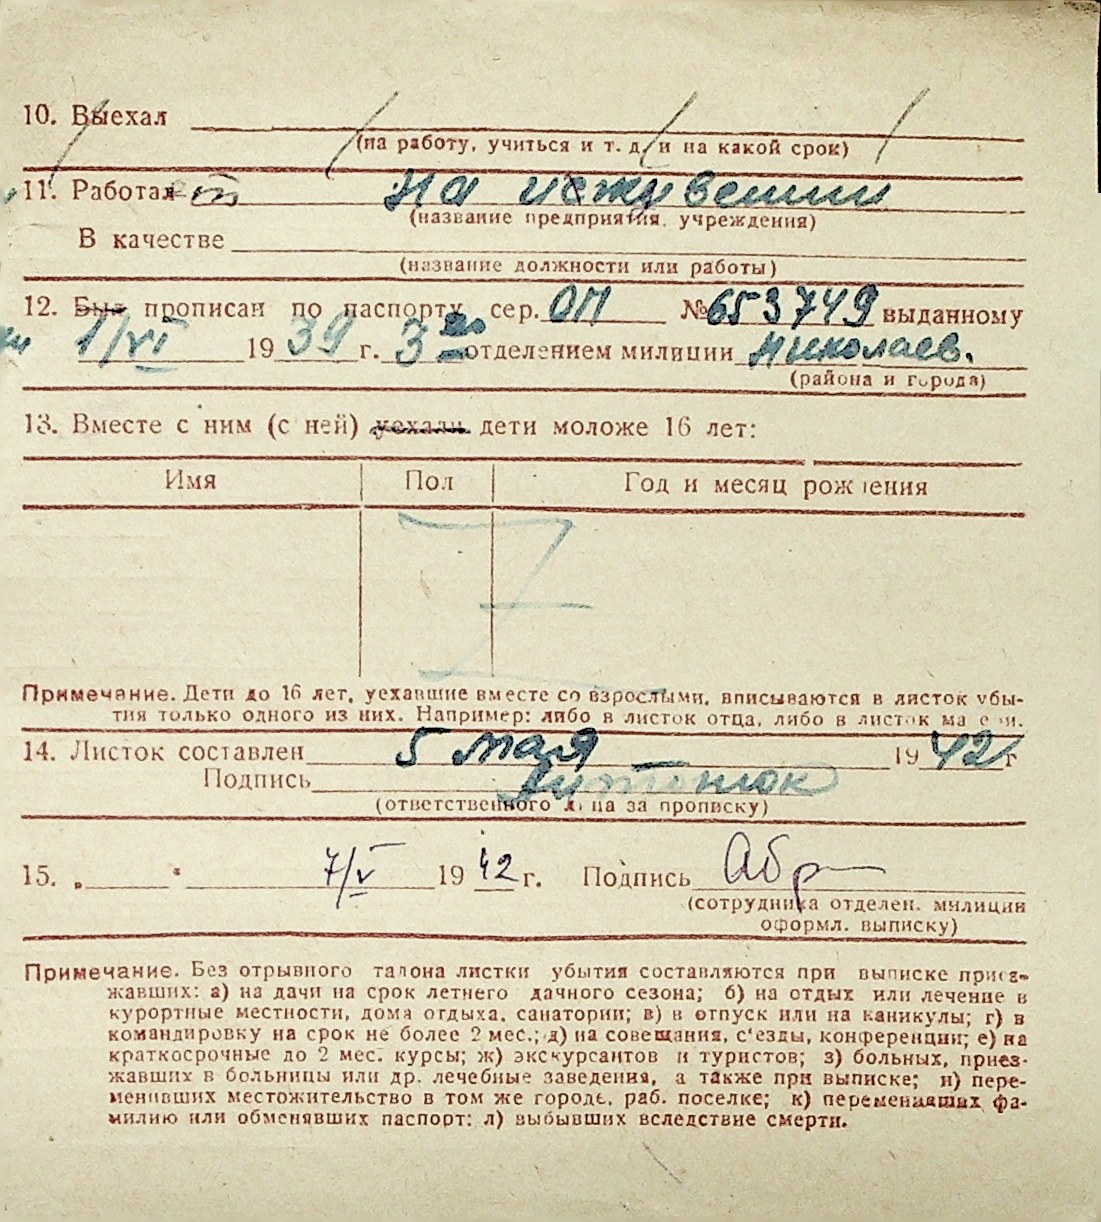 10. Выехал
(на работу, учиться и т. д. и на какой срок)
11. Работает На иждивении
(название предприятия, учреждения)
В качестве
(название должности или работы)
12. Был прописан по паспорту сер. ОП № 653749 выданному
1/VI 1939 г. 3 отделением милиции Николаев.
(района и города)
13. Вместе с ним (с ней) уехали дети моложе 16 лет:
Имя Пол Год и месяц рождения
Z
Примечание. Дети до 16 лет, уехавшие вместе со взрослыми, вписываются в листок убы-
тия только одного из них. Например: либо в листок отца, либо в листок матери.
14. Листок составлен 5 мая 1942 г
Подпись
(ответственного лица за прописку)
15. „ “ 7/V 1942 г. Подпись Абр
(сотрудника отделен. милиции
оформл. выписку)
Примечание. Без отрывного талона листки убытия составляются при выписке приез-
жавших: а) на дачи на срок летнего дачного сезона; б) на отдых или лечение в
курортные местности, дома отдыха, санатории; в) в отпуск или на каникулы; г) в
командировку на срок не более 2 мес.; д) на совещания, с'езды, конференции; е) на
краткосрочные до 2 мес. курсы; ж) экскурсантов и туристов; з) больных, приез-
жавших в больницы или др. лечебные заведения, а также при выписке; и) пере-
менивших местожительство в том же городе, раб. поселке; к) переменивших фа-
милию или обменявших паспорт; л) выбывших вследствие смерти.